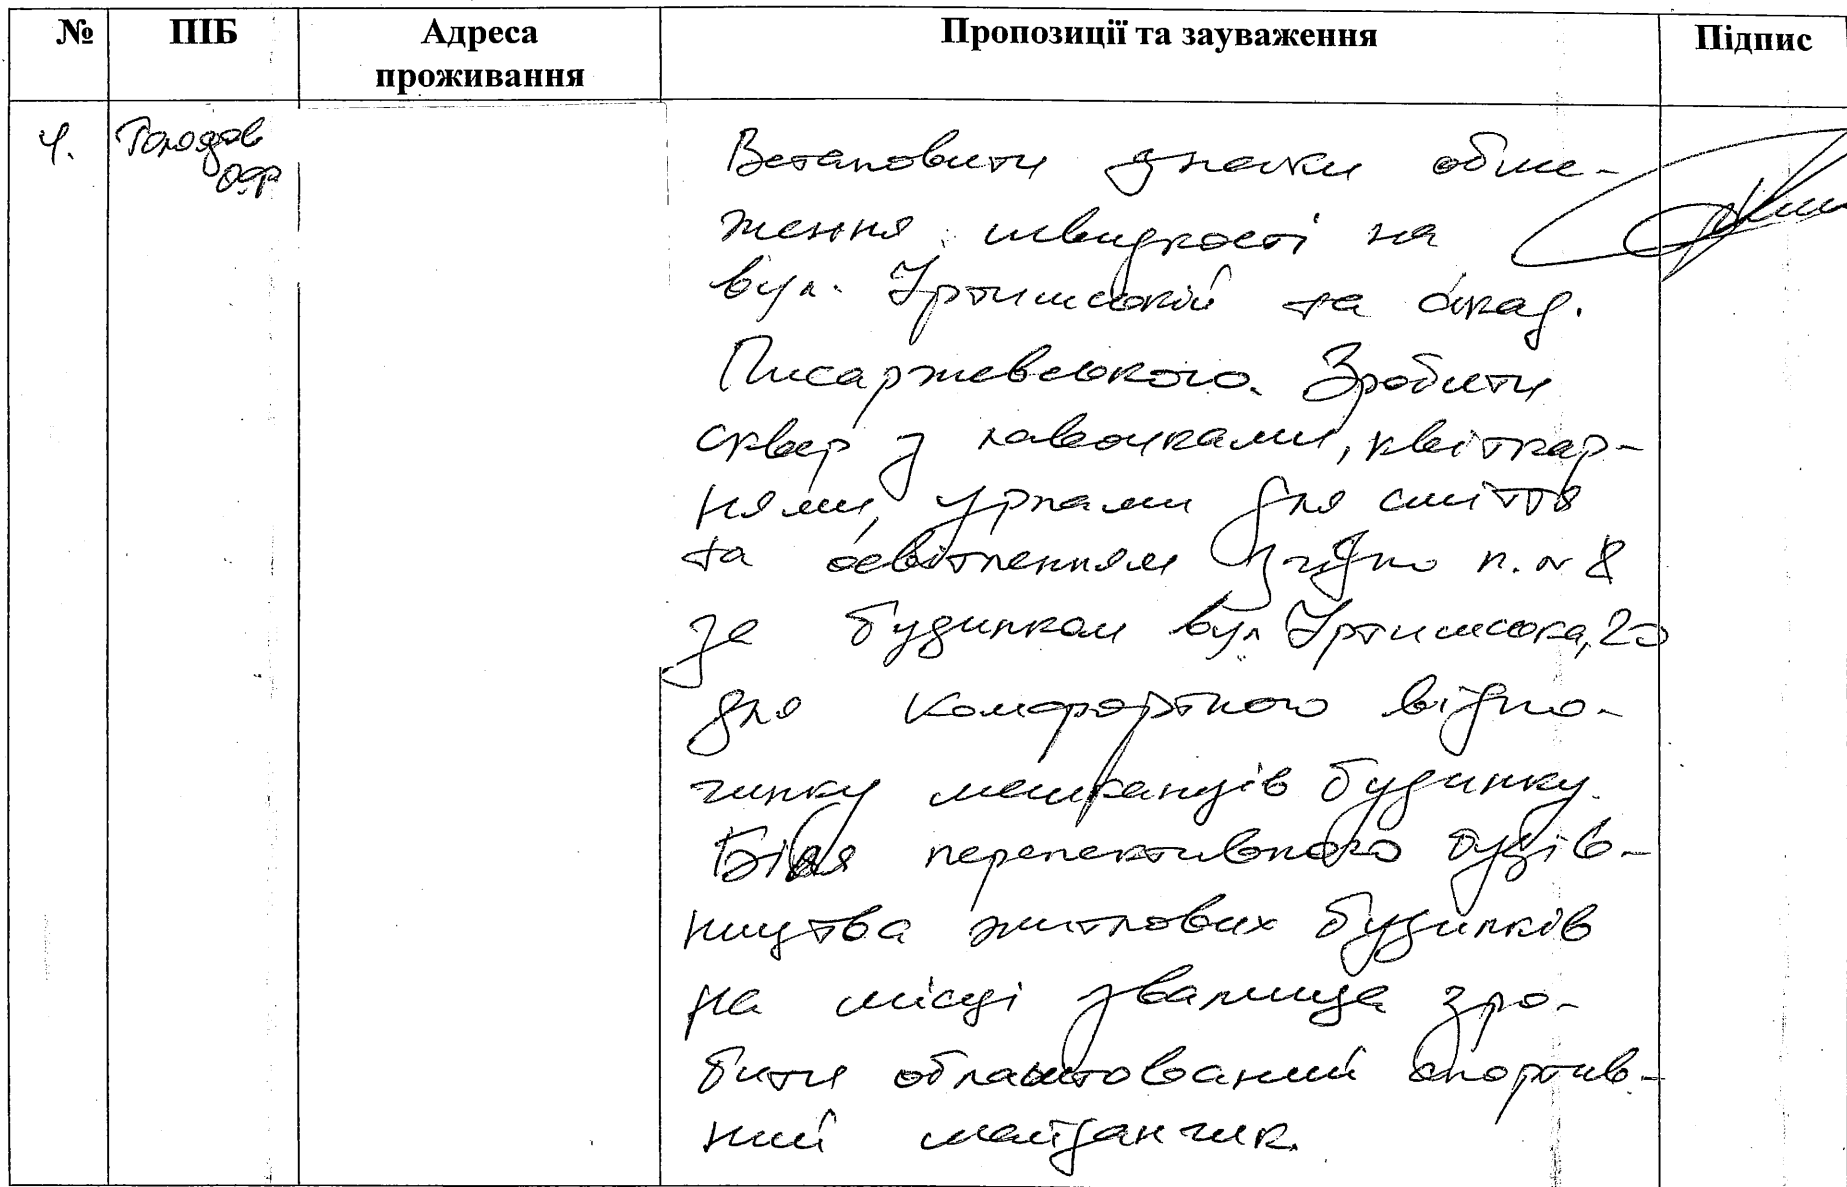 № ПІБ Адреса проживання Пропозиції та зауваження Підпис
4. Голодов О.Ф. Встановити значки обме-
ження швидкості на
вул. Іртишській та акад.
Писаржевського. Зробити
сквер з лавочками, квіткар-
нями, урнами для сміття
та освітленням згідно п. № 8
за будинком вул. Іртишська, 20
для комфортного відпо-
чинку мешканців будинку.
Біля перепективного будів-
ництва житлових будинків
на місці звалища зро-
бити облаштований спортив-
ний майданчик.